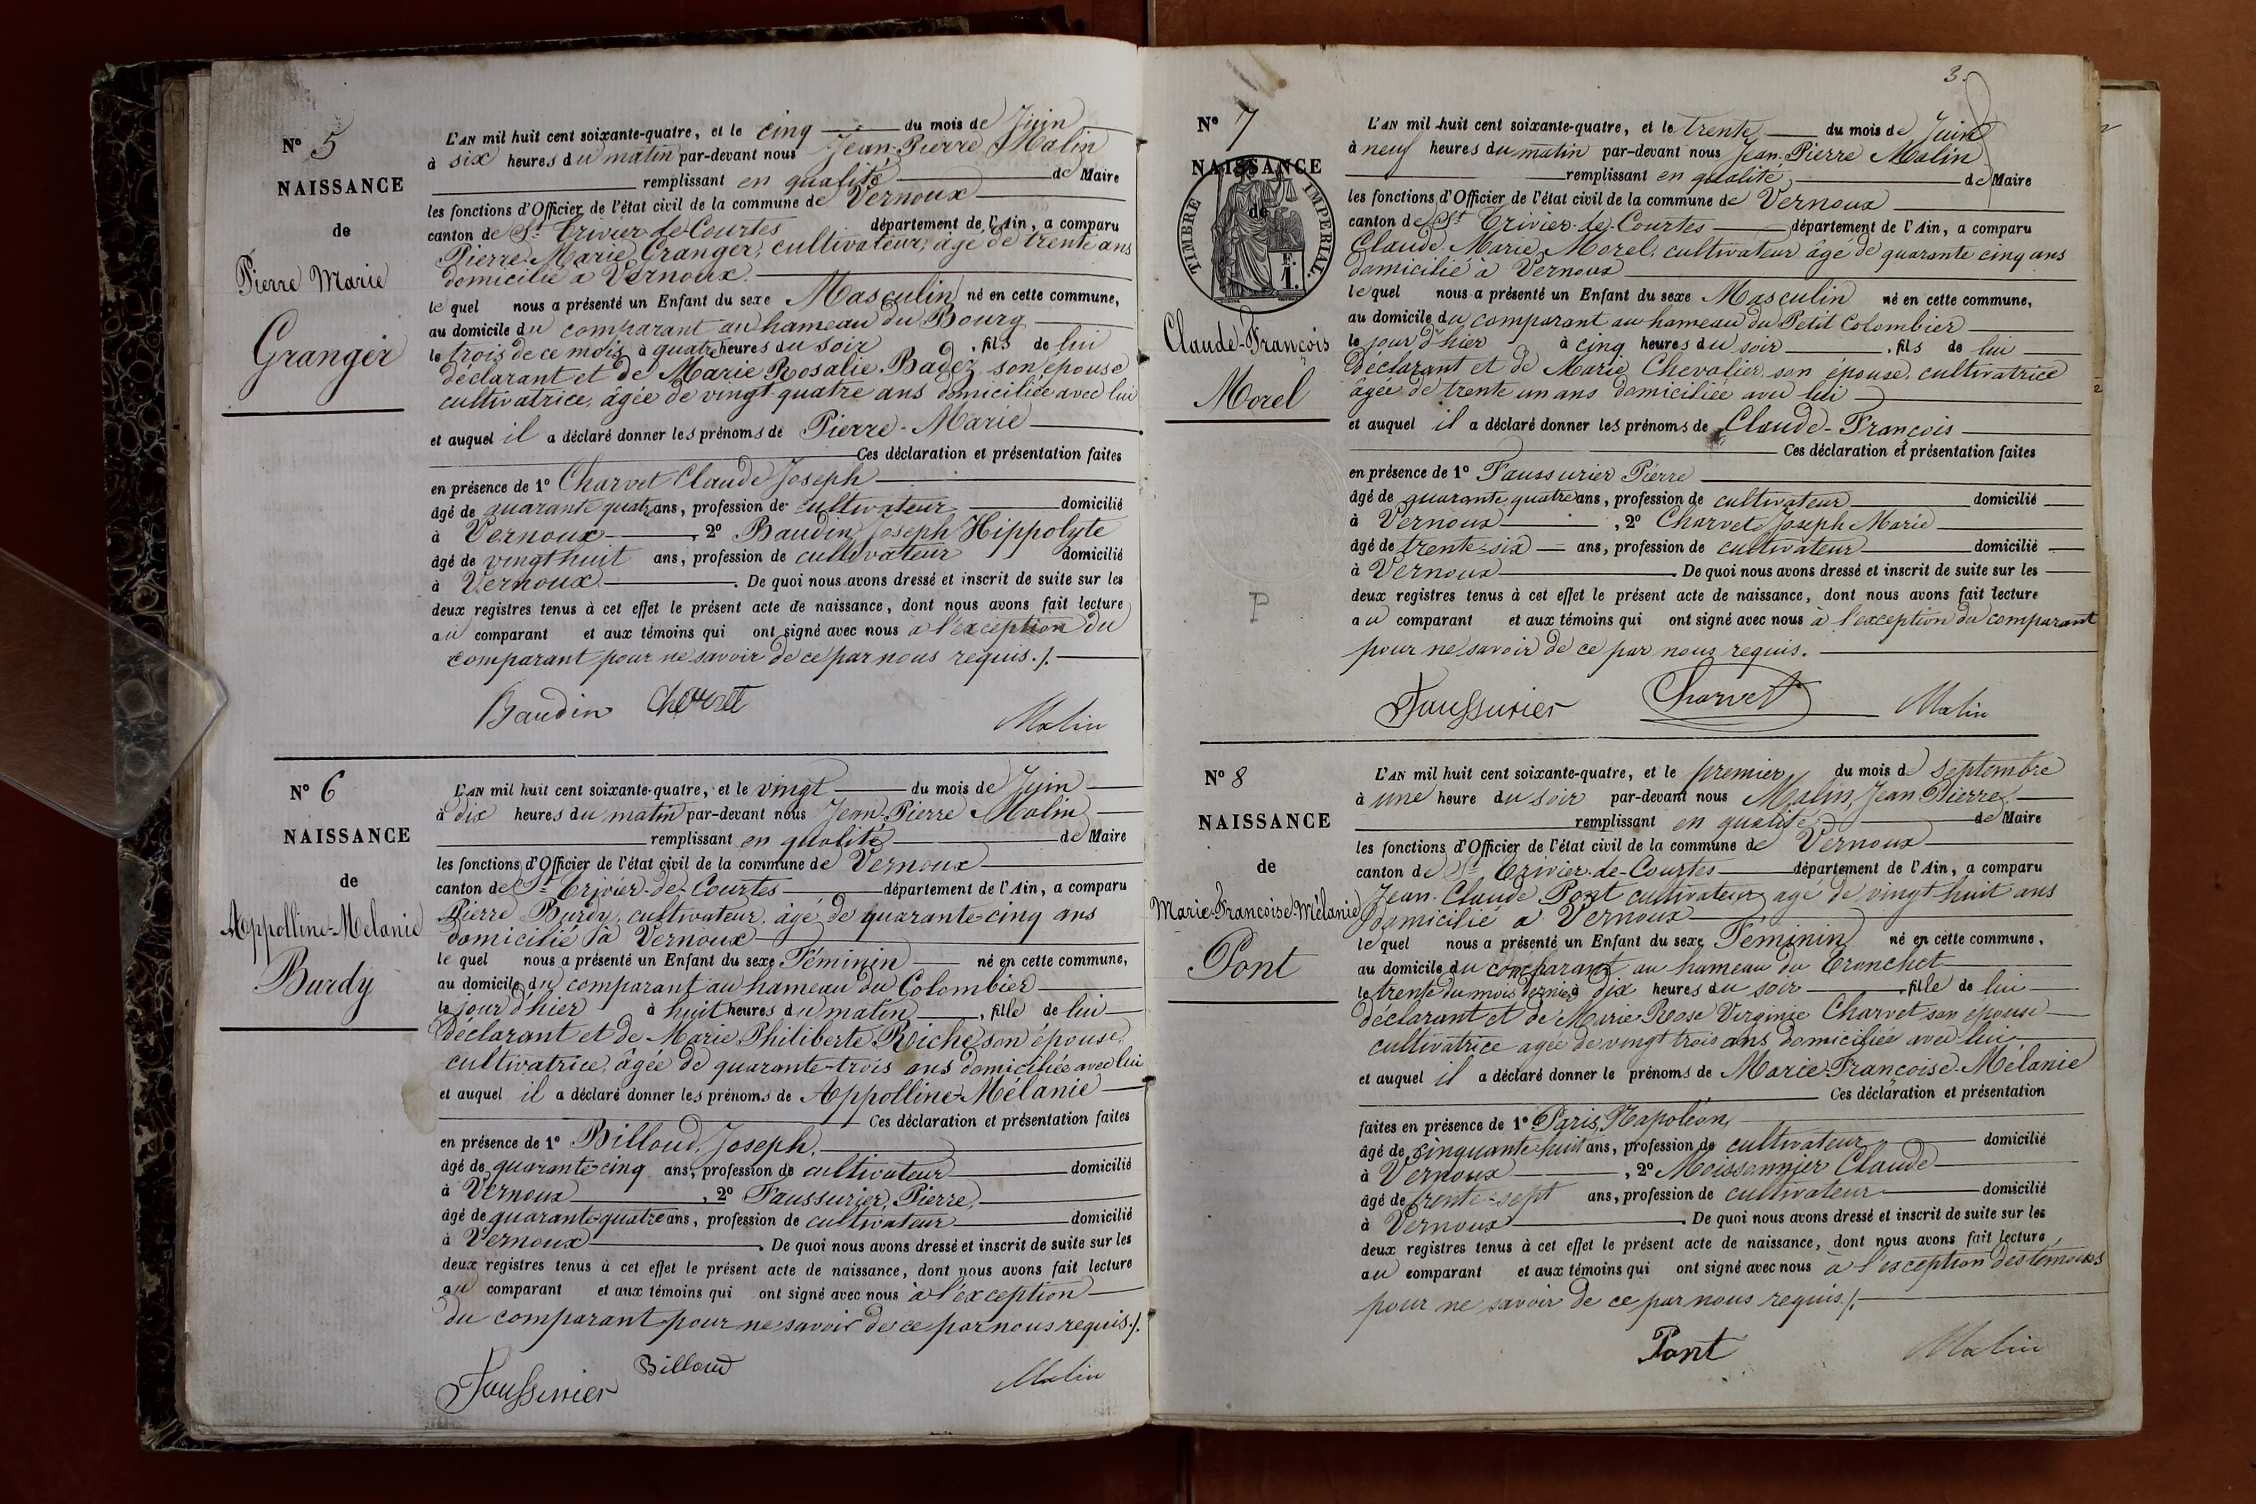 N° 5
NAISSANCE
de
Pierre Marie
Granger
L'AN mil huit cent soixante-quatre, et le cinq du mois de Juin
à six heures du matin par-devant nous Jean-Pierre Malin
remplissant en qualité de Maire
les fonctions d'Officier de l'état civil de la commune de Vernoux
canton de St Trivier-de-Courtes département de l'Ain, a comparu
Pierre-Marie Granger, cultivateur, âgé de trente ans
domicilié à Vernoux
lequel nous a présenté un Enfant du sexe Masculin né en cette commune,
au domicile du comparant au hameau du Bourg
le trois de ce mois à quatre heures du soir, fils de lui
déclarant et de Marie Rosalie Badez son épouse
cultivatrice, âgée de vingt quatre ans domiciliée avec lui
et auquel il a déclaré donner les prénoms de Pierre-Marie
Ces déclaration et présentation faites
en présence de 1° Charvet Claude Joseph
âgé de quarante quatre ans, profession de cultivateur domicilié
à Vernoux, 2° Baudin Joseph Hippolyte
âgé de vingt huit ans, profession de cultivateur domicilié
à Vernoux. De quoi nous avons dressé et inscrit de suite sur les
deux registres tenus à cet effet le présent acte de naissance, dont nous avons fait lecture
au comparant et aux témoins qui ont signé avec nous à l'exception du
comparant pour ne savoir de ce par nous requis ./.
Baudin Charvet Malin
N° 6
NAISSANCE
de
Appolline-Melanie
Burdy
L'AN mil huit cent soixante-quatre, et le vingt du mois de Juin
à dix heures du matin par-devant nous Jean-Pierre Malin
remplissant en qualité de Maire
les fonctions d'Officier de l'état civil de la commune de Vernoux
canton de St Trivier-de-Courtes département de l'Ain, a comparu
Pierre Burdy, cultivateur, âgé de quarante-cinq ans
domicilié à Vernoux
lequel nous a présenté un Enfant du sexe Féminin né en cette commune,
au domicile du comparant au hameau du Colombier
le jour d'hier à huit heures du matin, fille de lui
déclarant et de Marie Philiberte Riche son épouse,
cultivatrice, âgée de quarante-trois ans domiciliée avec lui
et auquel il a déclaré donner les prénoms de Appolline-Mélanie
Ces déclaration et présentation faites
en présence de 1° Billoud, Joseph,
âgé de quarante-cinq ans, profession de cultivateur domicilié
à Vernoux, 2° Faussurier, Pierre,
âgé de quarante-quatre ans, profession de cultivateur domicilié
à Vernoux. De quoi nous avons dressé et inscrit de suite sur les
deux registres tenus à cet effet le présent acte de naissance, dont nous avons fait lecture
au comparant et aux témoins qui ont signé avec nous à l'exception
du comparant pour ne savoir de ce par nous requis ./.
Faussurier Billoud Malin
3.
N° 7
NAISSANCE
de
TIMBRE IMPERIAL.
F.
1.
Claude-François
Morel
L'AN mil huit cent soixante-quatre, et le trente du mois de Juin
à neuf heures du matin par-devant nous Jean-Pierre Malin
remplissant en qualité de Maire
les fonctions d'Officier de l'état civil de la commune de Vernoux
canton de St Trivier-de-Courtes département de l'Ain, a comparu
Claude-Marie Morel, cultivateur âgé de quarante cinq ans
domicilié à Vernoux
lequel nous a présenté un Enfant du sexe Masculin né en cette commune,
au domicile du comparant au hameau du Petit Colombier
le jour d'hier à cinq heures du soir, fils de lui
déclarant et de Marie Chevalier son épouse, cultivatrice
âgée de trente un ans domiciliée avec lui
et auquel il a déclaré donner les prénoms de Claude-François
Ces déclaration et présentation faites
en présence de 1° Faussurier Pierre
âgé de quarante quatre ans, profession de cultivateur domicilié
à Vernoux, 2° Charvet Joseph Marie
âgé de trente-six ans, profession de cultivateur domicilié
à Vernoux. De quoi nous avons dressé et inscrit de suite sur les
deux registres tenus à cet effet le présent acte de naissance, dont nous avons fait lecture
au comparant et aux témoins qui ont signé avec nous à l'exception du comparant
pour ne savoir de ce par nous requis.
P
Faussurier Charvet Malin
N° 8
NAISSANCE
de
Marie-Francoise-Mélanie
Pont
L'AN mil huit cent soixante-quatre, et le premier du mois de Septembre
à une heure du soir par-devant nous Malin, Jean Pierre
remplissant en qualité de Maire
les fonctions d'Officier de l'état civil de la commune de Vernoux
canton de St Trivier-de-Courtes département de l'Ain, a comparu
Jean-Claude Pont cultivateur agé de vingt huit ans
domicilié a Vernoux
lequel nous a présenté un Enfant du sexe Féminin né en cette commune,
au domicile du comparant au hameau du Tronchet
le trente du mois dernier à dix heures du soir, fille de lui
déclarant et de Marie Rose Virginie Charvet son épouse
cultivatrice agée de vingt trois ans domiciliée avec lui
et auquel il a déclaré donner le prénoms de Marie-Francoise-Mélanie
Ces déclaration et présentation
faites en présence de 1° Paris, Napoléon,
âgé de cinquante-huit ans, profession de cultivateur domicilié
à Vernoux, 2° Moissonnier Claude
âgé de trente-sept ans, profession de cultivateur domicilié
à Vernoux. De quoi nous avons dressé et inscrit de suite sur les
deux registres tenus à cet effet le présent acte de naissance, dont nous avons fait lecture
au comparant et aux témoins qui ont signé avec nous à l'exception des témoins
pour ne savoir de ce par nous requis ./.
Pont Malin